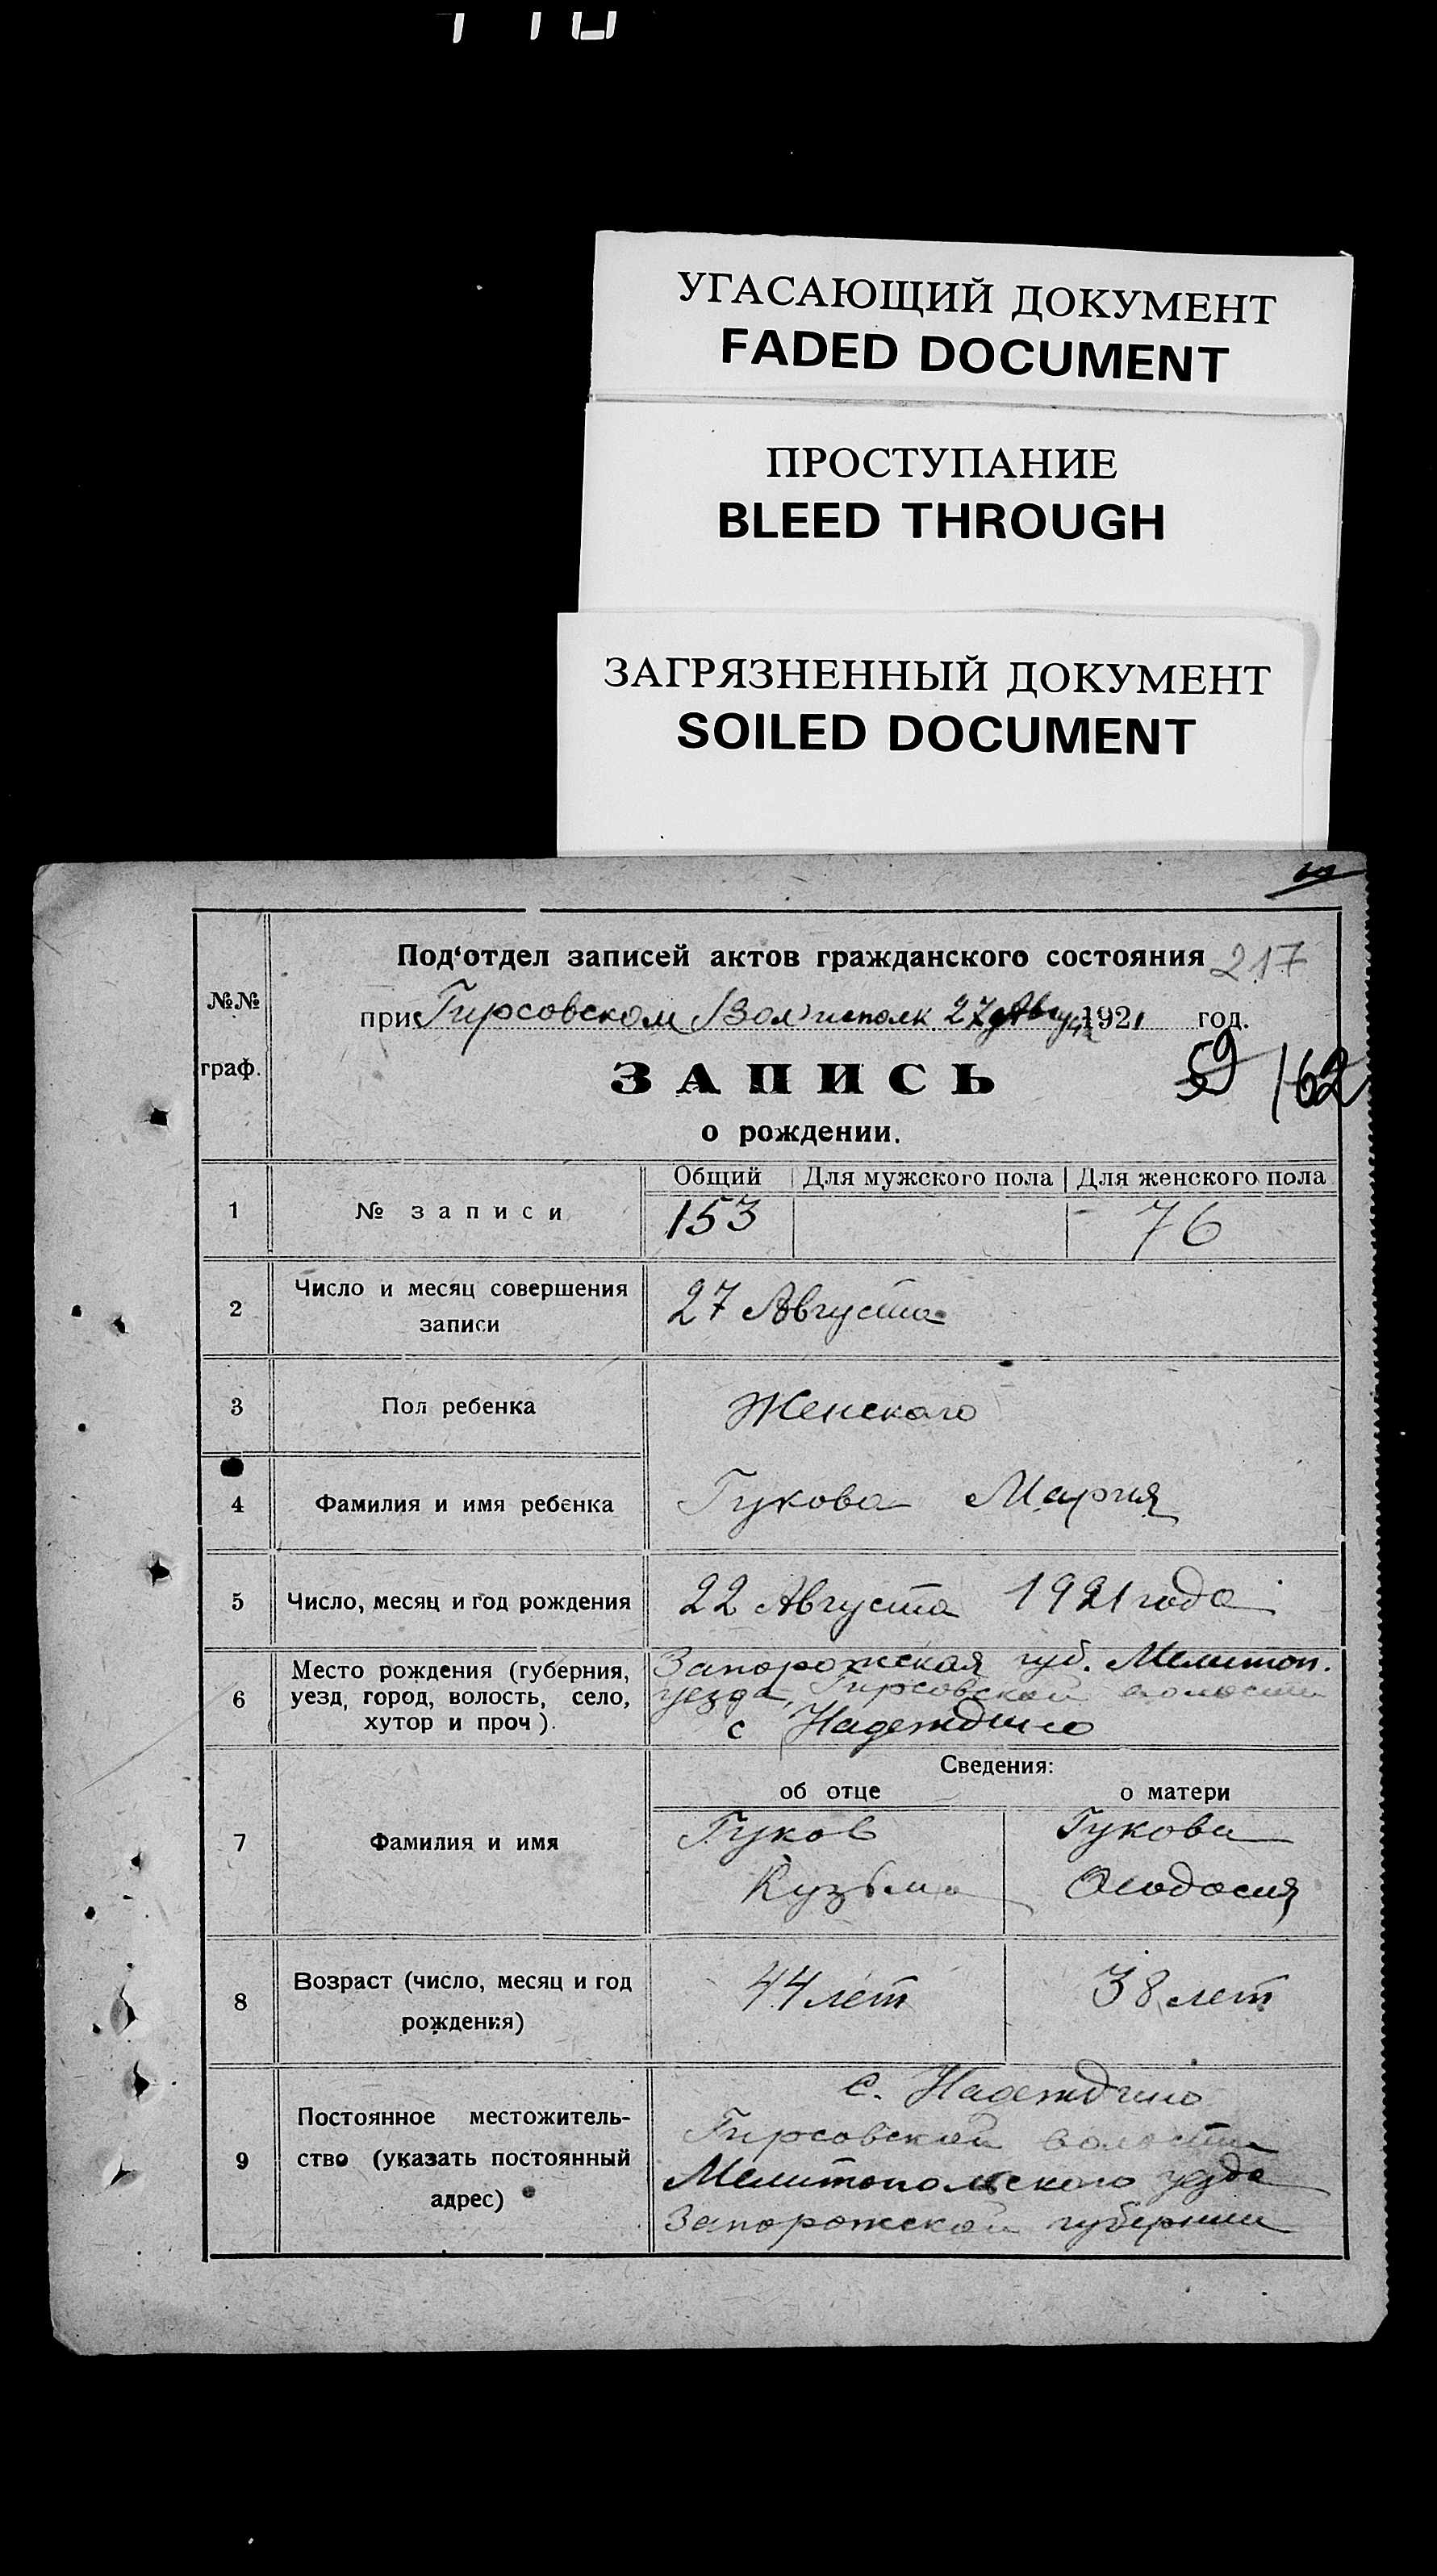 УГАСАЮЩИЙ ДОКУМЕНТ
FADED DOCUMENT
ПРОСТУПАНИЕ
BLEED THROUGH
ЗАГРЯЗНЕННЫЙ ДОКУМЕНТ
SOILED DOCUMENT
№№ граф.
Под‘отдел записей актов гражданского состояния 217
при Гирсовском Волисполк 27 Авгус 1921 год.
ЗАПИСЬ 59 162
о рождении.
Общий Для мужского пола Для женского пола
1 № записи 153 76
2 Число и месяц совершения
записи
27 Августа
3 Пол ребенка Женского
4 Фамилия и имя ребенка Гукова Мария
5 Число, месяц и год рождения 22 Августа 1921 года
6 Место рождения (губерния,
уезд, город, волость, село,
хутор и проч).
Запорожская губ. Мелитоп.
уезда, Гирсовской волости
с Надеждино
Сведения:
об отце о матери
7 Фамилия и имя
Гуков Гукова
Кузьма Феодосия
8 Возраст (число, месяц и год
рождения)
44 лет 38 лет
9 Постоянное местожитель-
ство (указать постоянный
адрес)
с. Надеждино
Гирсовской волости
Мелитопольского уезда
Запорожской губернии